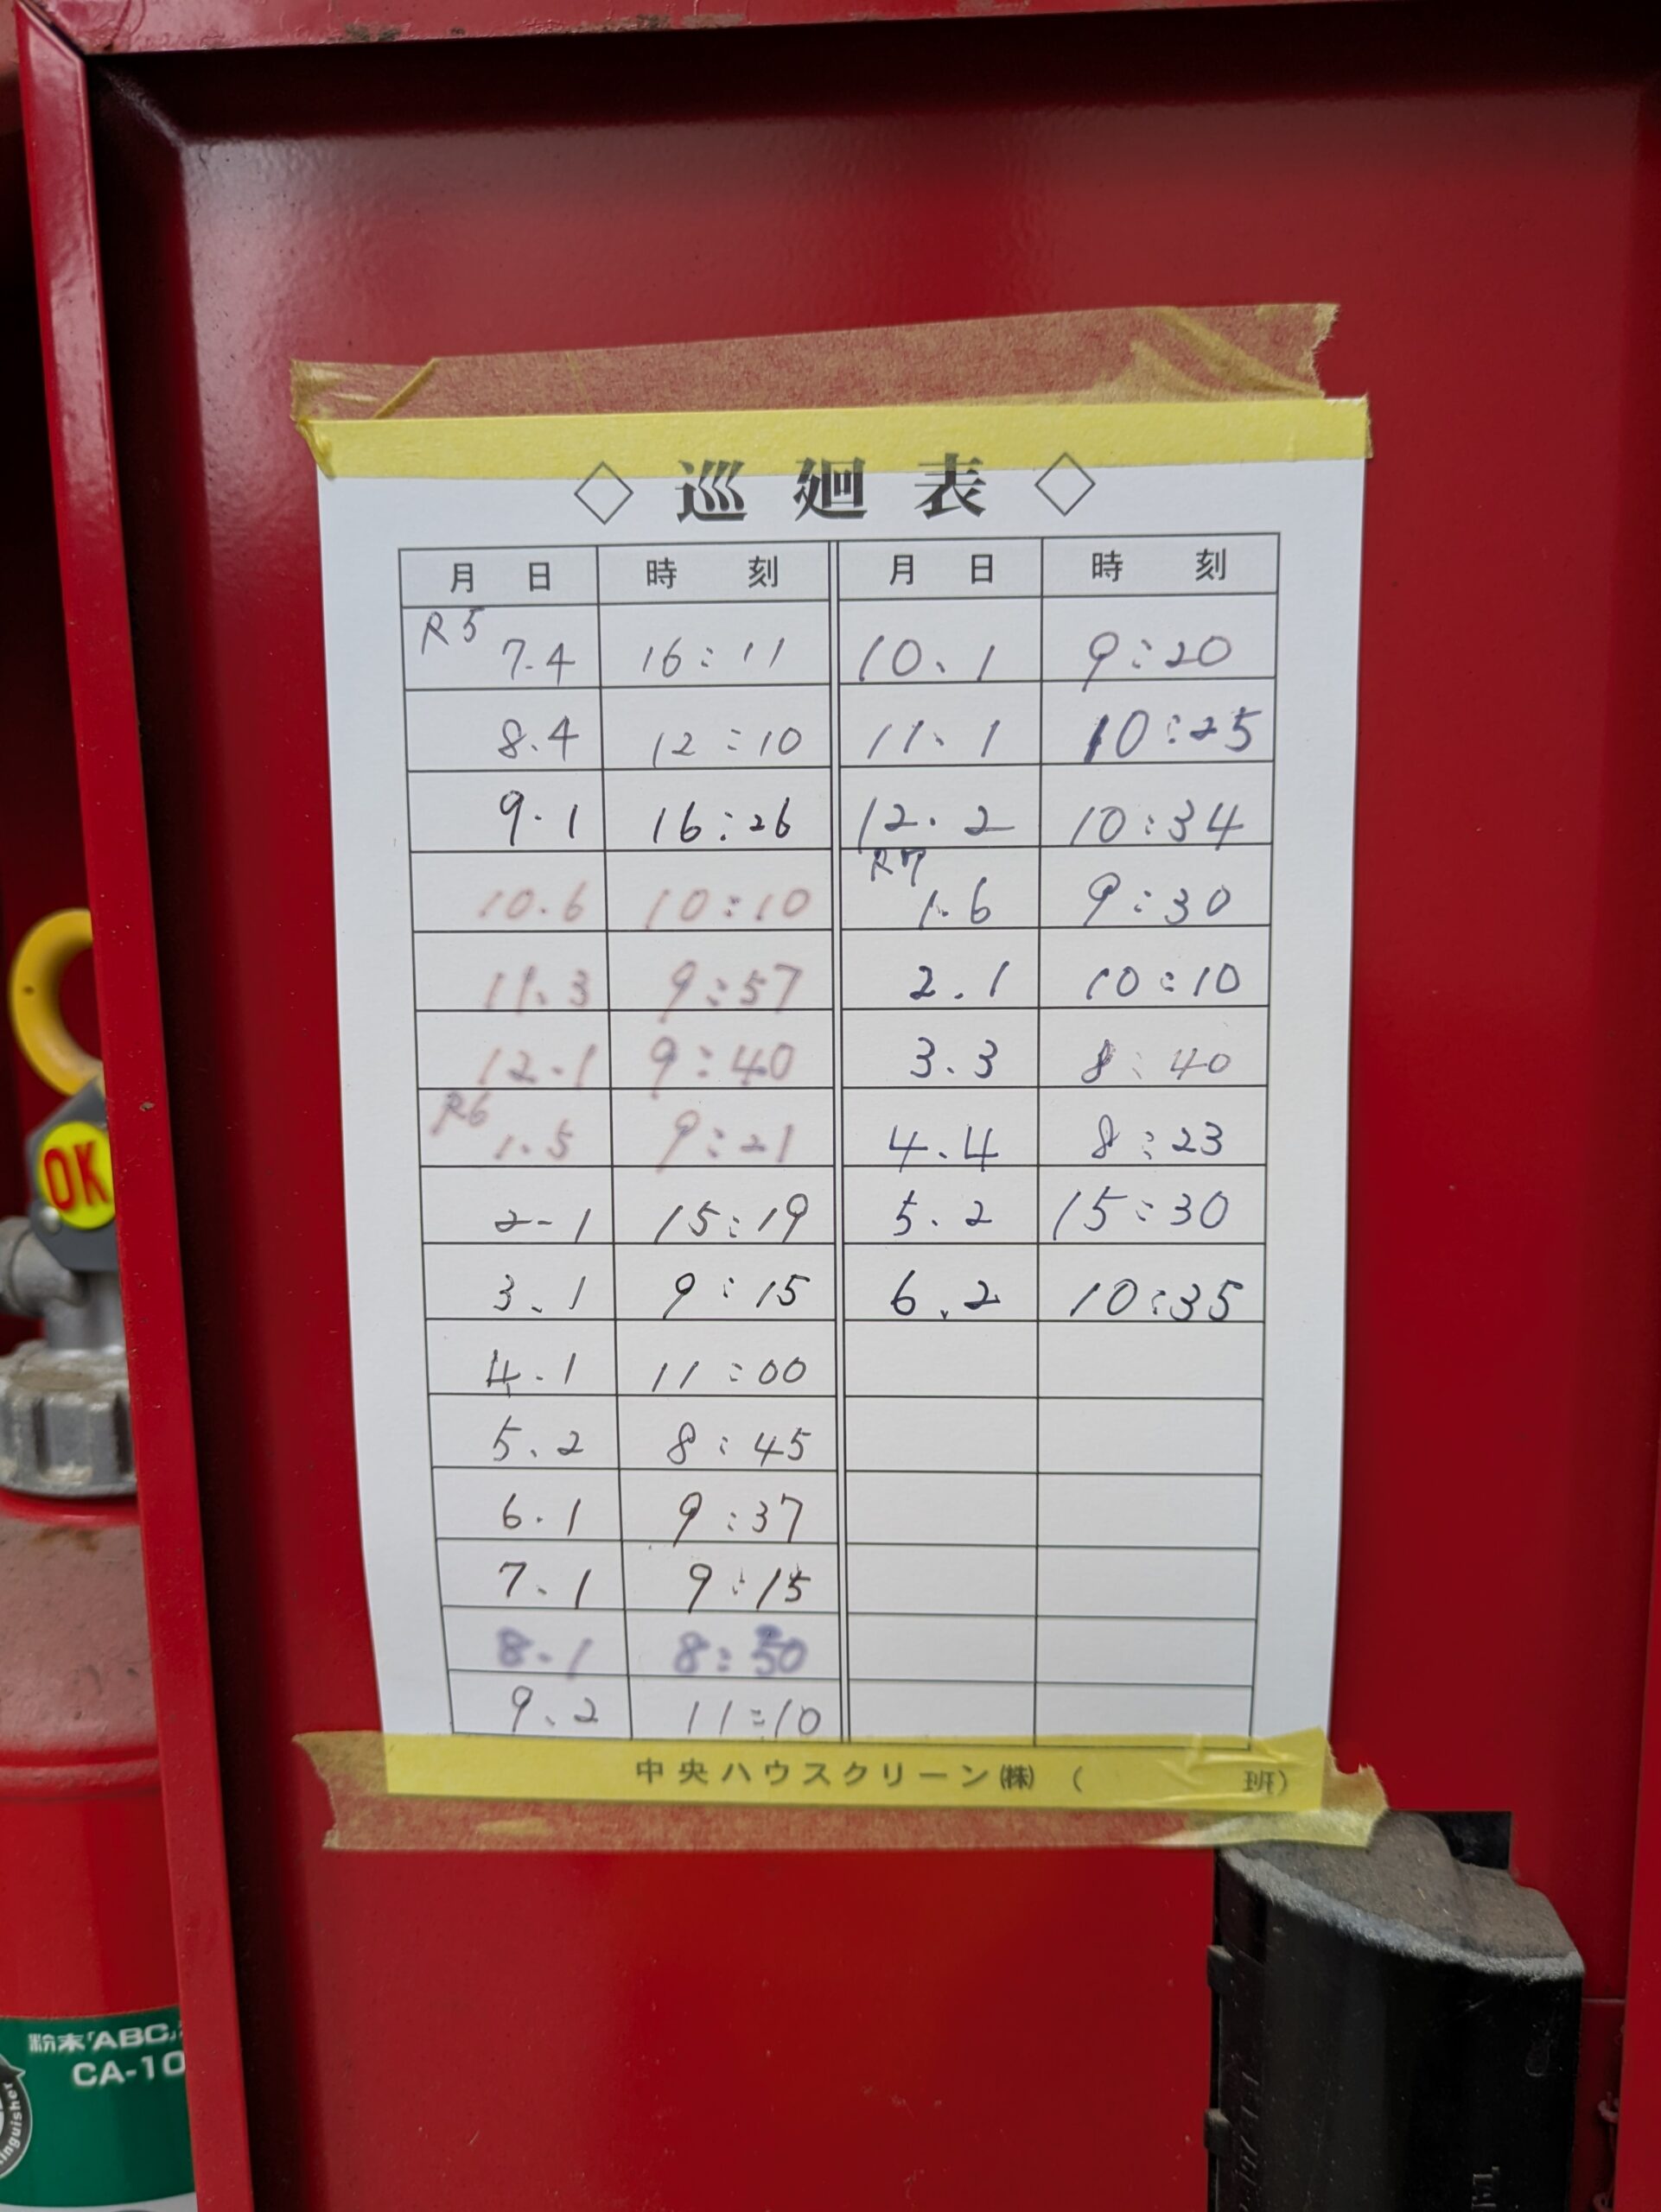 ◇ 巡廻表 ◇
月 日 時 刻 月 日 時 刻
R5 7.4 16:11 10.1 9:20
8.4 12:10 11.1 10:25
9.1 16:26 12.2 10:34
10.6 10:10 R7 1.6 9:30
11.3 9:57 2.1 10:10
12.1 9:40 3.3 8:40
R6 1.5 9:21 4.4 8:23
2-1 15:19 5.2 15:30
3.1 9:15 6.2 10:35
4.1 11:00
5.2 8:45
6.1 9:37
7.1 9:15
8.1 8:50
9.2 11:10
中央ハウスクリーン㈱ ( 班)
OK
粉末「ABC」
CA-10